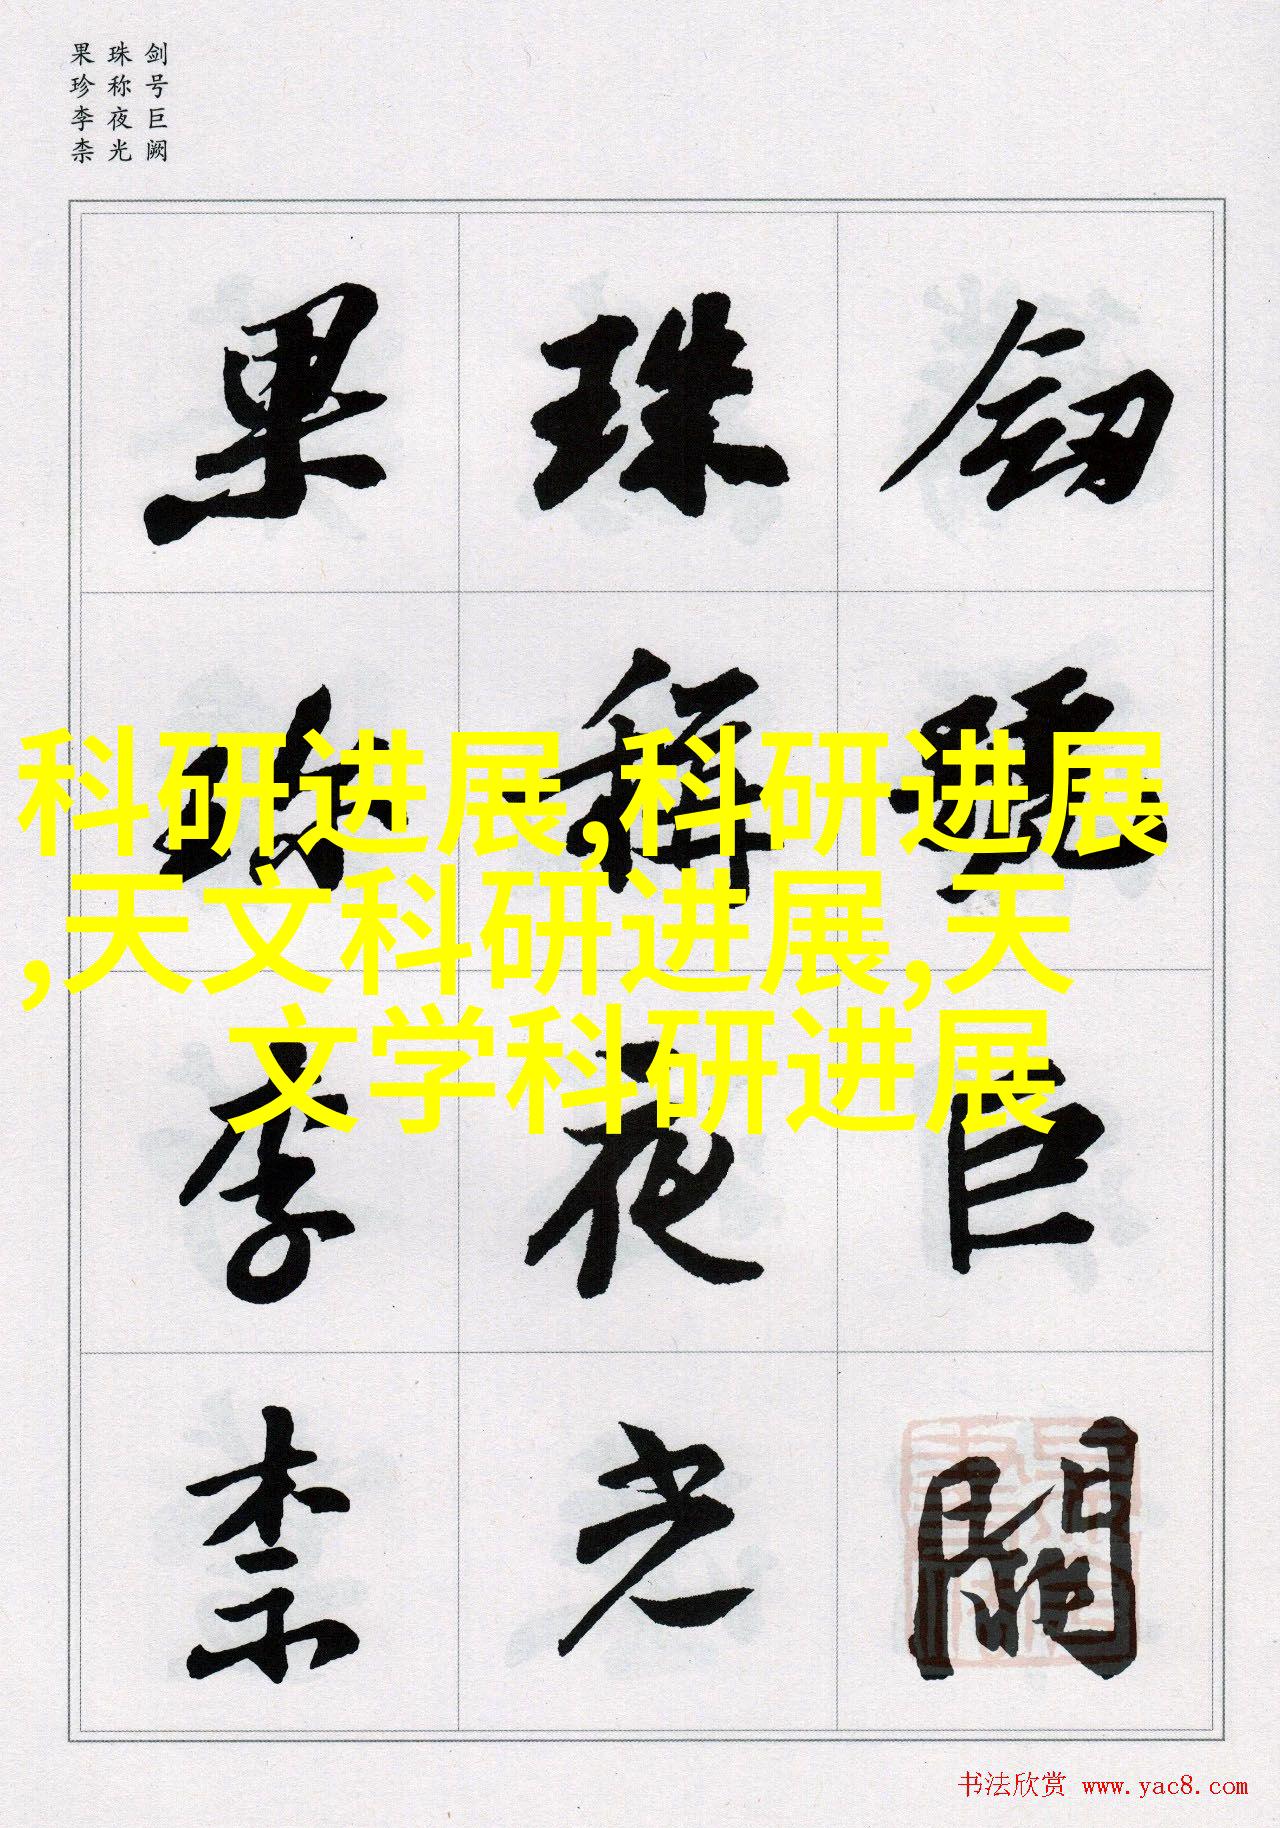 剑号巨阙
珠称夜光
果珍李柰
劒號巨闕
珠稱夜光
果珍李柰
科研进展,科研进展
,天文科研进展,天
文学科研进展
书法欣赏 www.yac8.com